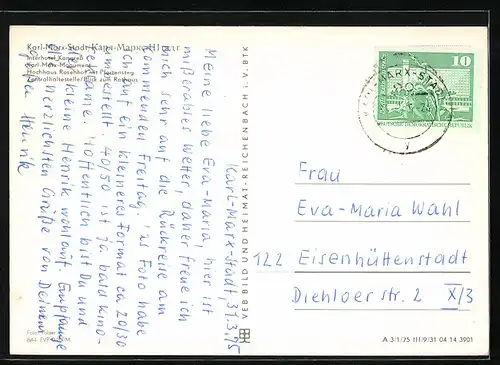 Karl-Marx-Stadt Карл-Маркс-Штадт
Interhotel Kongreß
Karl-Marx-Monument
Hochhaus Rosenhof mit Pfortensteg
Zentralhaltestelle/Blick zum Rathaus
Karl-Marx-Stadt, 31.3.75
Meine liebe Eva-Maria, hier ist
miserables Wetter, daher freue ich
mich sehr auf die Rückreise am
kommenden Freitag. Das Foto habe
ich auf ein kleineres Format ca 20/30
umbestellt. 40/50 ist ja bald Kino-
reklame. Hoffentlich bist Du und
kleine Henrik wohlauf. Empfange
herzlichsten Grüße von Deinem
VEB BILD UND HEIMAT · REICHENBACH i. V. BTK
10
DEUTSCHE DEMOKRATISCHE REPUBLIK
KARL-MARX-STADT
Frau
Eva-Maria Wahl
122 Eisenhüttenstadt
Diehloer str. 2 X/3
A 3/1/75 III/9/31 04 14 3901